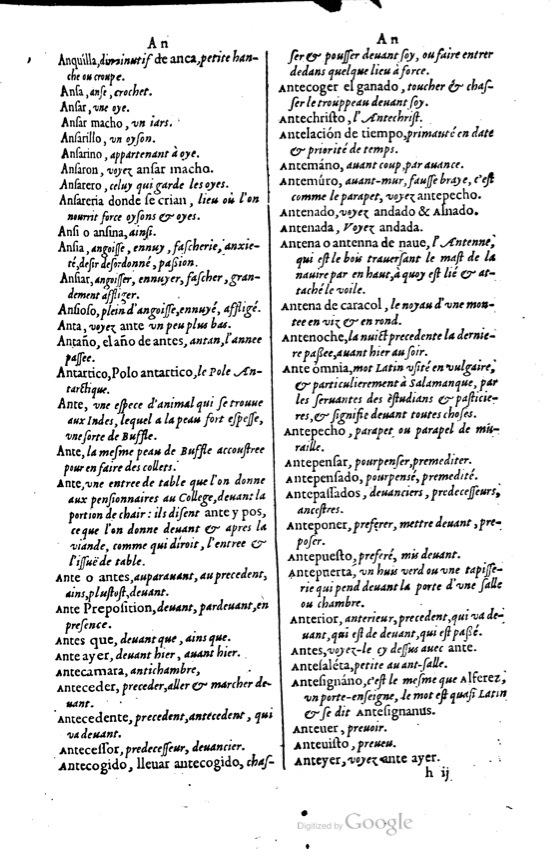 An
Anquilla, diminutif de anca, petite han-
che ou croupe.
Ansa, anse, crochet.
Ansar, vne oye.
Ansar macho, vn iars.
Ansarillo, vn oyson.
Ansarino, appartenant à oye.
Ansaron, voyez ansar macho.
Ansarero, celuy qui garde les oyes.
Ansareria donde se crian, lieu où l'on
nourrit force oysons & oyes.
Ansi o ansina, ainsi.
Ansia, angoisse, ennuy, fascherie, anxie-
té, desir desordonné, passion.
Ansiar, angoisser, ennuyer, fascher, gran-
dement affliger.
Ansioso, plein d'angoisse, ennuyé, affligé.
Anta, voyez ante vn peu plus bas.
Antaño, el año de antes, antan, l'annee
passee.
Antartico, Polo antartico, le Pole An-
tarctique.
Ante, vne espece d'animal qui se trouue
aux Indes, lequel a la peau fort espesse,
vne sorte de Buffle.
Ante, la mesme peau de Buffle accoustree
pour en faire des collets.
Ante, vne entree de table que l'on donne
aux pensionnaires au College, deuant la
portion de chair: ils disent ante y pos,
ce que l'on donne deuant & apres la
viande, comme qui diroit, l'entree &
l'issuë de table.
Ante o antes, auparauant, au precedent,
ains, plustost, deuant.
Ante Preposition, deuant, pardeuant, en
presence.
Antes que, deuant que, ains que.
Ante ayer, deuant hier, auant hier.
Antecamara, antichambre,
Anteceder, preceder, aller & marcher de-
uant.
Antecedente, precedent, antecedent, qui
va deuant.
Antecessor, predecesseur, deuancier.
Antecogido, lleuar antecogido, chas-
An
ser & pousser deuant soy, ou faire entrer
dedans quelque lieu à force.
Antecoger el ganado, toucher & chas-
ser le trouppeau deuant soy.
Antechristo, l'Antechrist.
Antelación de tiempo, primauté en date
& priorité de temps.
Antemáno, auant coup, par auance.
Antemúro, auant-mur, fausse braye, c'est
comme le parapet, voyez antepecho.
Antenado, voyez andado & Alnado.
Antenada, Voyez andada.
Antena o antenna de naue, l'Antenne,
qui est le bois trauersant le mast de la
nauire par en haut, à quoy est lié & at-
taché le voile.
Antena de caracol, le noyau d'vne mon-
tee en viz & en rond.
Antenoche, la nuict precedente la dernie-
re passee, auant hier au soir.
Ante omnia, mot Latin vsité en vulgaire,
& particulierement à Salamanque, par
les seruantes des estudians & pasticie-
res, & signifie deuant toutes choses.
Antepecho, parapet ou parapel de mu-
raille.
Antepensar, pourpenser, premediter.
Antepensado, pourpensé, premedité.
Antepassados, deuanciers, predecesseurs,
ancestres.
Anteponer, preferer, mettre deuant, pre-
poser.
Antepuesto, preferé, mis deuant.
Antepuerta, vn huis verd ou vne tapisse-
rie qui pend deuant la porte d'vne salle
ou chambre.
Anterior, anterieur, precedent, qui va de-
uant, qui est de deuant, qui est passé.
Antes, voyez-le cy dessus auec ante.
Antesaléta, petite auant-salle.
Antesignáno, c'est le mesme que Alferez,
vn porte-enseigne, le mot est quasi Latin
& se dit Antesignanus.
Anteuer, preuoir.
Anteuisto, preueu.
Anteyer, voyez ante ayer.
h ij
Digitized by Google